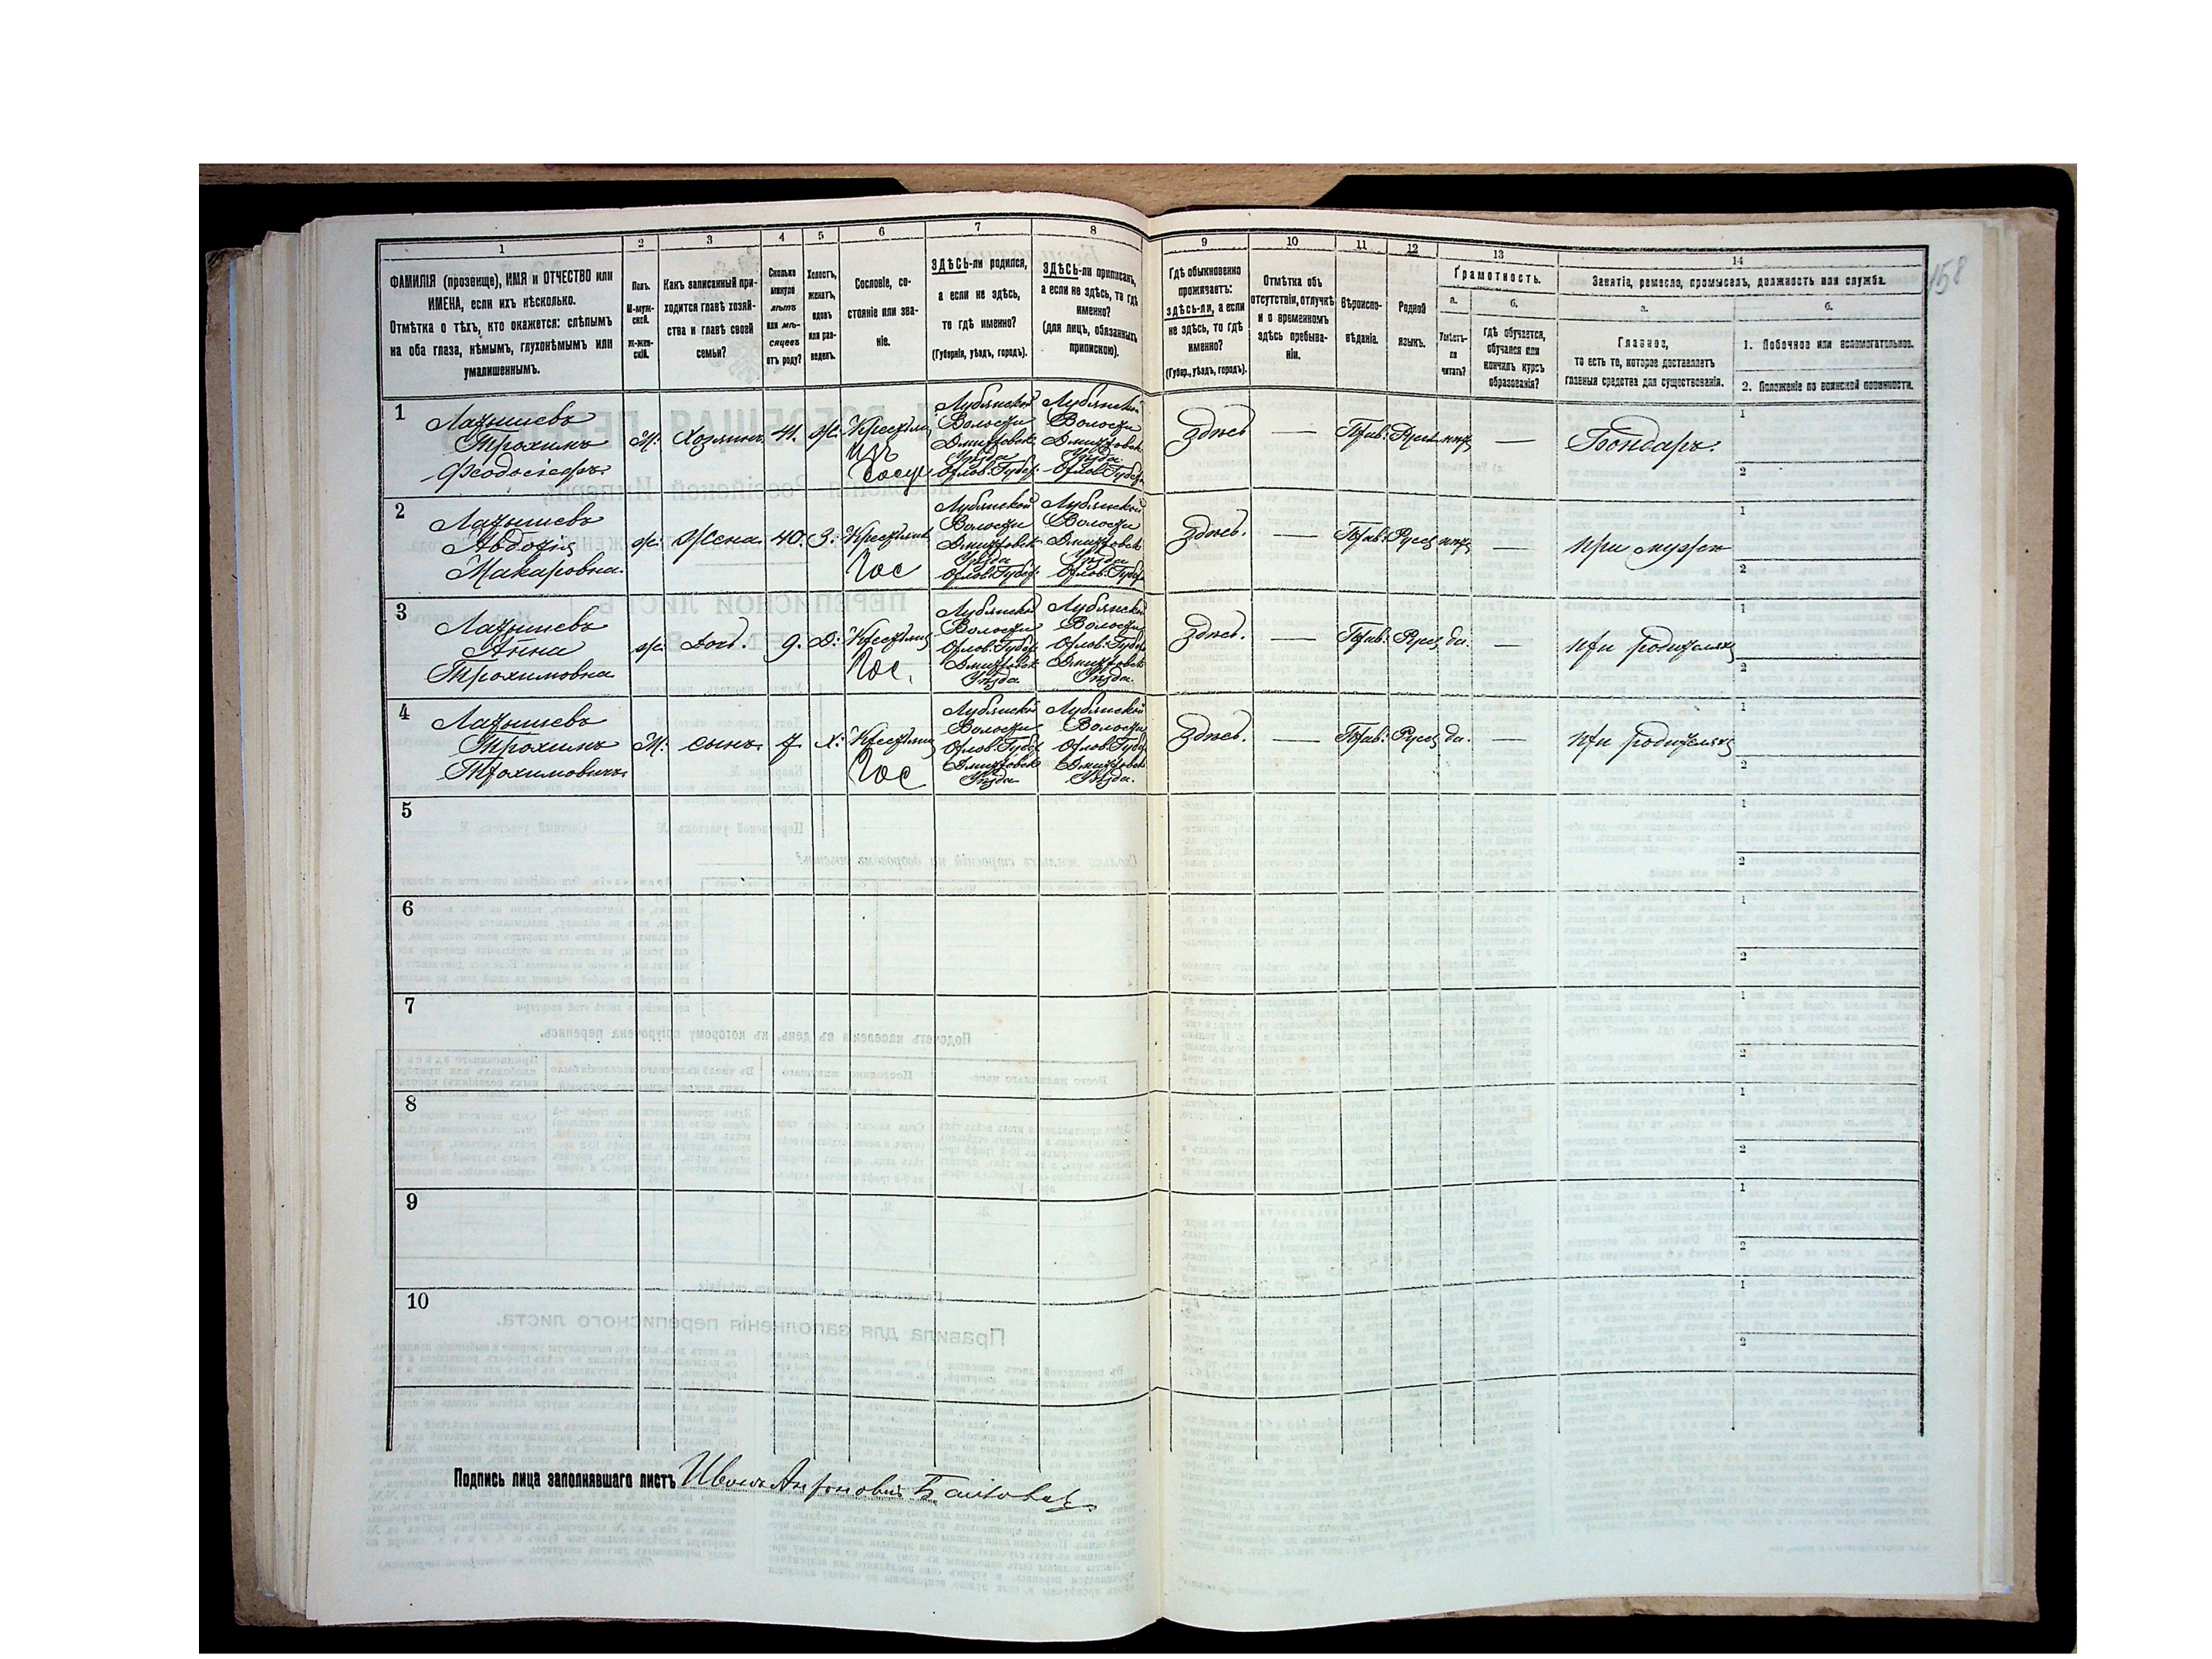 1 2 3 4 5 6 7 8 9 10 11 12 13 14
ФАМИЛІЯ (прозвище), ИМЯ и ОТЧЕСТВО или
ИМЕНА, если ихъ нѣсколько.
Отмѣтка о тѣхъ, кто окажется: слѣпымъ
на оба глаза, нѣмымъ, глухонѣмымъ или
умалишеннымъ.
Полъ.
М-муж-
ской.
Ж-жен-
скій.
Какъ записанный при-
ходится главѣ хозяй-
ства и главѣ своей
семьи?
Сколько
минуло
лѣтъ
или мѣ-
сяцевъ
отъ роду?
Холостъ,
женатъ,
вдовъ
или раз-
веденъ.
Сословіе, со-
стояніе или зва-
ніе.
ЗДѢСЬ-ли родился,
а если не здѣсь,
то гдѣ именно?
(Губернія, уѣздъ, городъ).
ЗДѢСЬ-ли приписанъ,
а если не здѣсь, то гдѣ
именно?
(для лицъ, обязанныхъ
припискою).
Гдѣ обыкновенно
проживаетъ:
здѣсь-ли, а если
не здѣсь, то гдѣ
именно?
(Губер., уѣздъ, городъ).
Отмѣтка объ
отсутствіи, отлучкѣ
и о временномъ
здѣсь пребыва-
ніи.
Вѣроиспо-
вѣданіе.
Родной
языкъ.
Грамотность.
а.
Умѣетъ-
ли
читать?
б.
гдѣ обучается,
обучался или
кончилъ курсъ
образованія?
Занятіе, ремесло, промыселъ, должность или служба.
а.
Главное,
то есть то, которое доставляетъ
главныя средства для существованія.
б.
1. Побочное или вспомогательное.
2. Положеніе по воинской повинности.
158
1
Латышевъ
Трохимъ
Феодосіевъ
М. Хозяинъ. 41. Ж.
Крестьян
изъ
Госуд
Лубянской
Волости
Дмитровск
Уѣзда
Орлов. Губер.
Лубянской
Волости
Дмитровск
Уѣзда
Орлов. Губер.
Здѣсь — Прав. Русск нѣтъ — Бондарь.
1
2
2
Латышевъ
Авдотія
Макаровна.
ж. Жена. 40. З. Крестьянк
Гос
Лубянской
Волости
Дмитровск
Уѣзда
Орлов. Губер.
Лубянской
Волости
Дмитровск
Уѣзда
Орлов. Губер
Здѣсь. — Прав. Русск нѣтъ — при мужѣ
1
2
3
Латышевъ
Анна
Трохимовна
ж. Доч. 9. Д. Крестьянк
Гос.
Лубянской
Волости
Орлов. Губер
Дмитровск
Уѣзда
Лубянской
Волости
Орлов. Губер
Дмитровск
Уѣзда.
Здѣсь. — Прав. Русск да. — при родителях
1
2
4
Латышевъ
Трохимъ
Трохимовичъ
М. сынъ. 7. Х. Крестьянин
Гос
Лубянской
Волости
Орлов. Губер
Дмитровск
Уѣзда
Лубянской
Волости
Орлов. Губер
Дмитровск
Уѣзда.
Здѣсь. — Прав. Русск да. — при родителях
1
2
5
1
2
6
1
2
7
1
2
8
1
2
9
1
2
10
1
2
Подпись лица заполнявшаго листъ Иванъ Антоновичъ